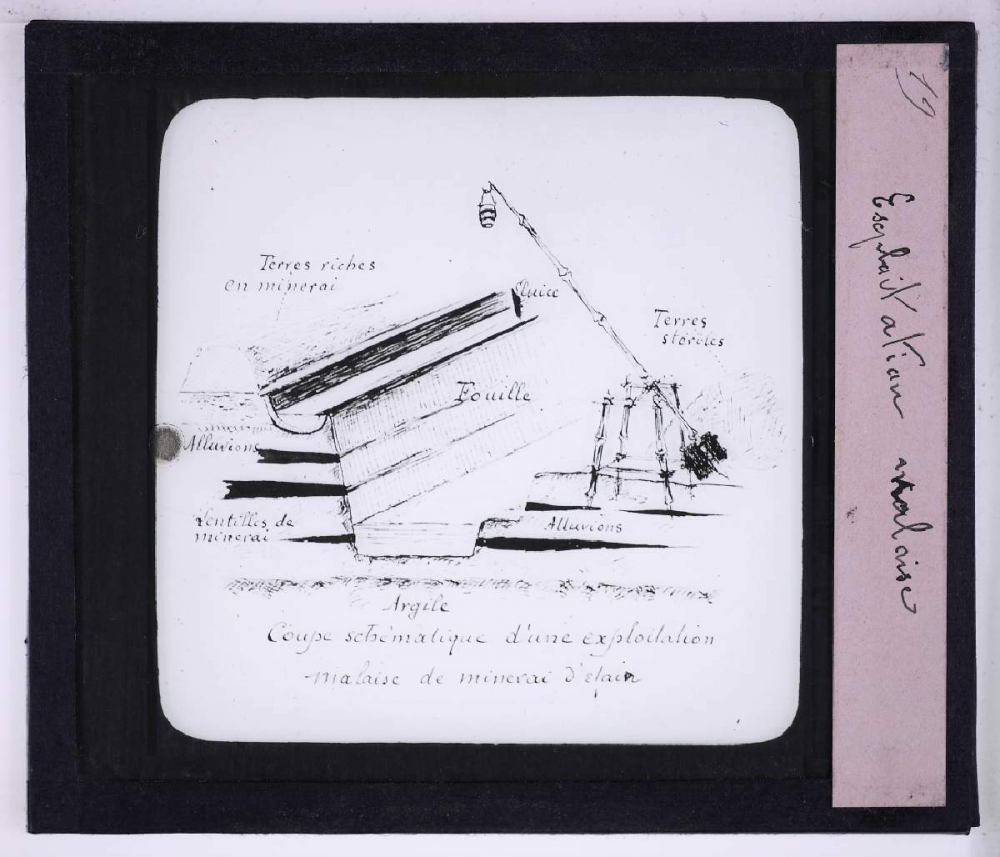 Terres riches
en minerai
Sluice
Terres
stériles
Fouille
Alluvions
Lentilles de
minerai
Alluvions
Argile
Coupe schématique d'une exploitation
malaise de minerai d'étain
19
Exploitation malaise